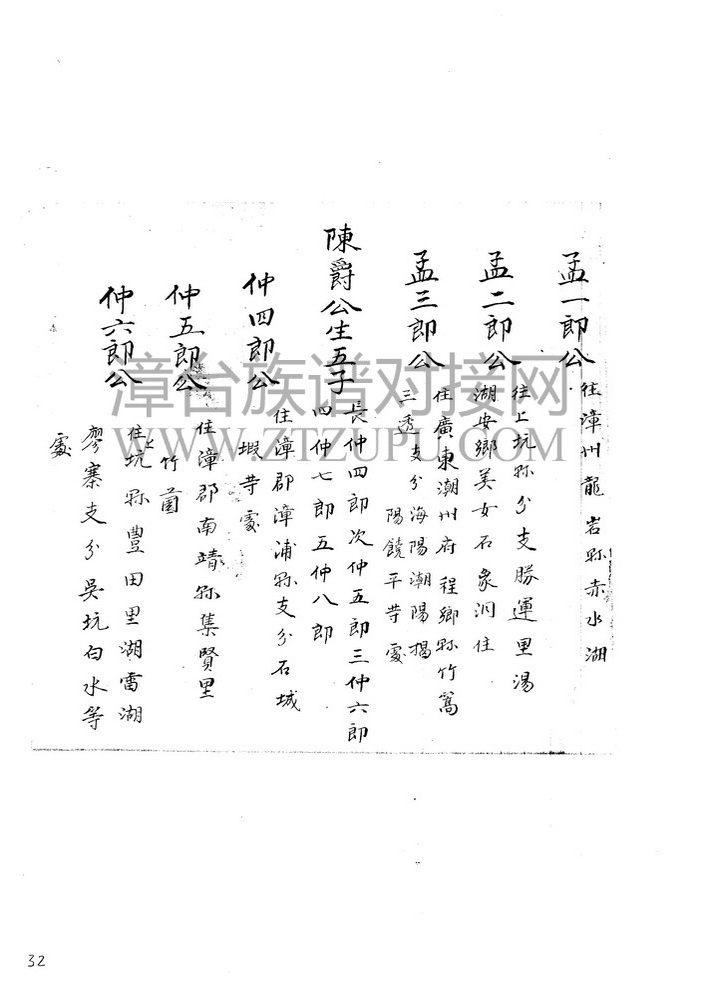 孟一郎公
住漳州龍岩縣赤水湖
孟二郎公
往上坑縣分支勝運里湯
湖安鄉美女石象洞住
孟三郎公
住廣東潮州府程鄉縣竹篙
三透支分海陽潮陽揭
陽饒平等處
陳爵公生五子
長仲四郎次仲五郎三仲六郎
四仲七郎五仲八郎
仲四郎公
住漳郡漳浦縣支分石城
蝦等處
仲五郎公
住漳郡南靖縣集賢里
竹
仲六郎公
住上坑縣豐田里湖雷湖
廖寨支分吳坑白水等
處
漳台族谱对接网
WWW.ZTZUPU.COM
32